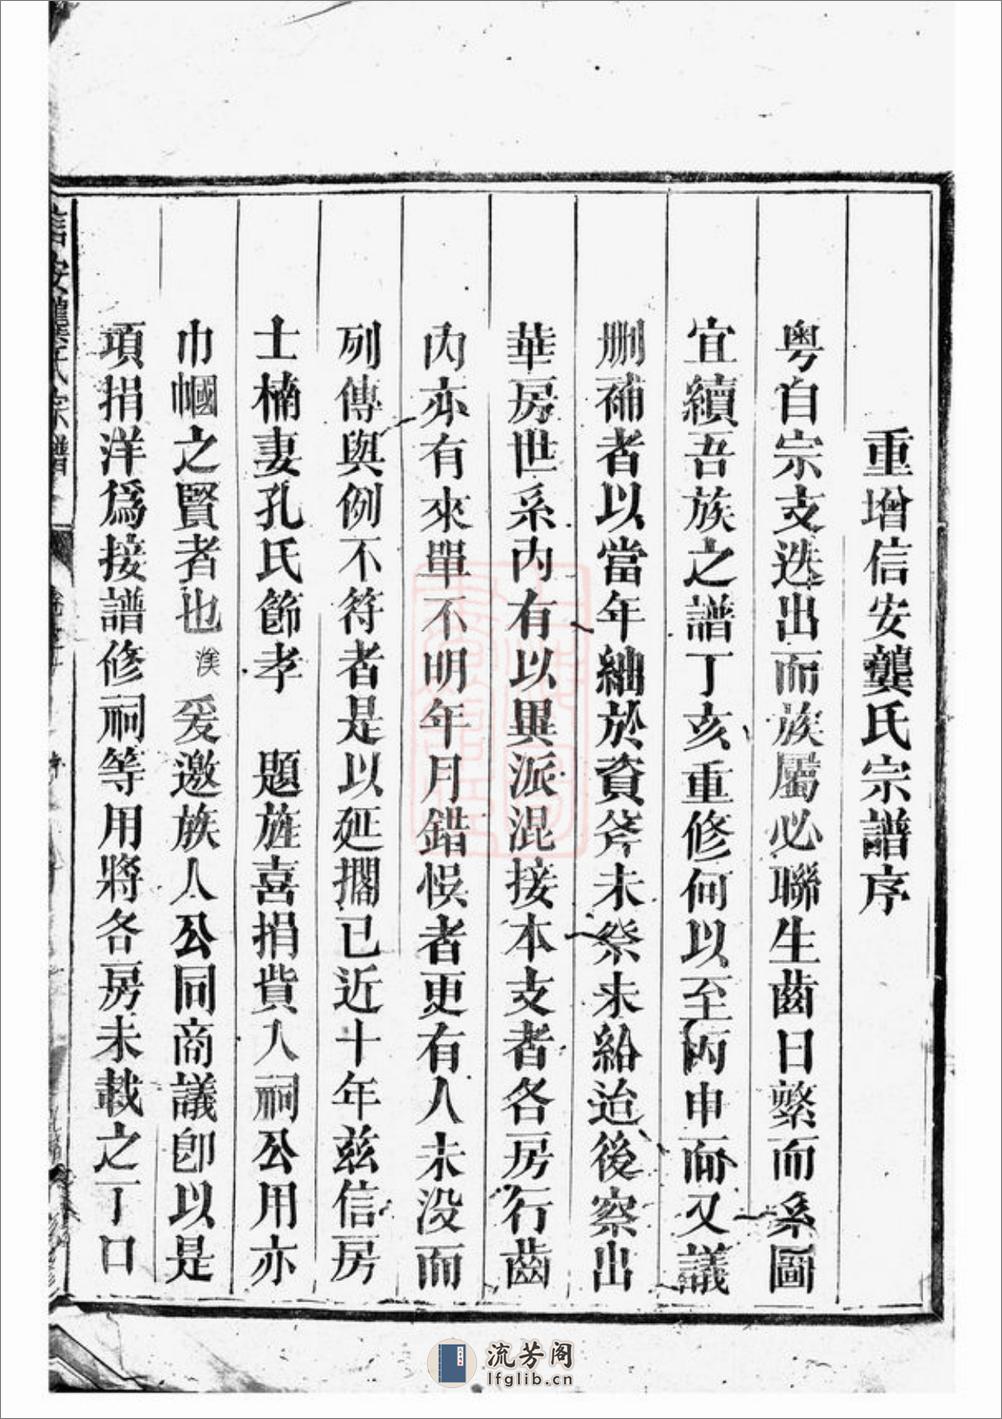 重增信安龔氏宗譜序
粤自宗支迭出而族屬必聯生齒日繁而系圖
宜續吾族之譜丁亥重修何以至丙申而又議
刪補者以當年紬於資斧未祭未紿迨後察出
華房世系內有以異派混接本支者各房行齒
內亦有來單不明年月錯悞者更有人未沒而
列傳與例不符者是以延擱已近十年茲信房
士楠妻孔氏節孝 題旌喜捐貲入祠公用亦
巾幗之賢者也 渼 爰邀族人公同商議卽以是
項捐洋爲接譜修祠等用將各房未載之丁口
信安龔氏宗譜
流芳阁
lfglib.cn